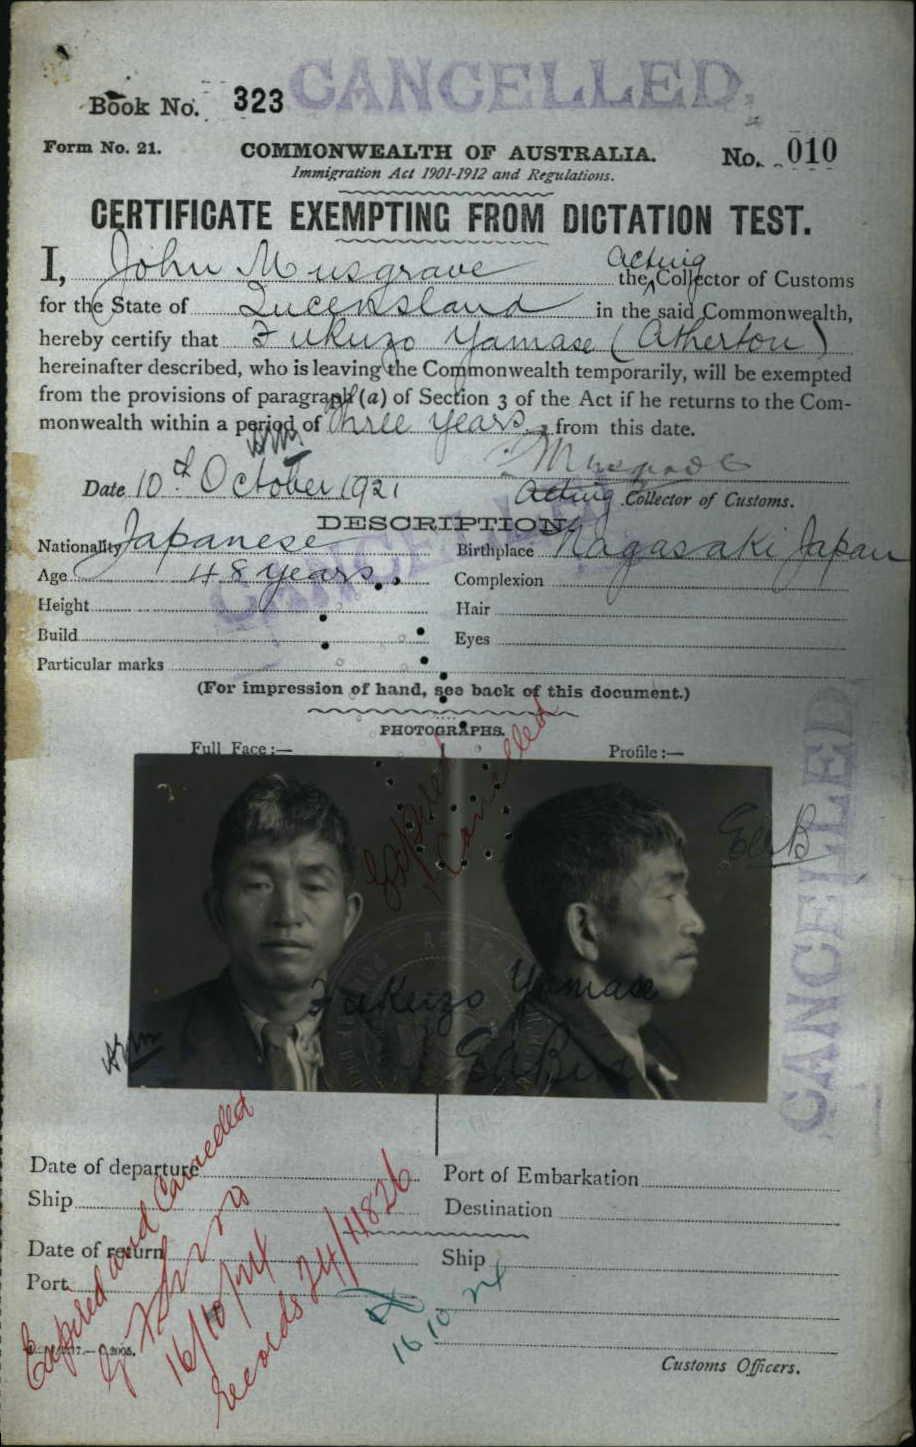 CANCELLED.
Book No. 323
Form No. 21.
COMMONWEALTH OF AUSTRALIA.
No. 010
Immigration Act 1901-1912 and Regulations.
CERTIFICATE EXEMPTING FROM DICTATION TEST.
I, John Musgrave the Acting Collector of Customs
for the State of Queensland in the said Commonwealth,
hereby certify that Fukuzo Yamase (Atherton)
hereinafter described, who is leaving the Commonwealth temporarily, will be exempted
from the provisions of paragraph (a) of Section 3 of the Act if he returns to the Com-
monwealth within a period of three years from this date.
J Musgrave
Date 10th October 1921
Acting Collector of Customs.
DESCRIPTION.
CANCELLED
Nationality Japanese
Birthplace Nagasaki Japan
Age 48 years
Complexion
Height
Hair
Build
Eyes
Particular marks
(For impression of hand, see back of this document.)
PHOTOGRAPHS.
Full Face:—
Profile:—
Expired
Cancelled
CANCELLED
Fukuzo Yamase
Date of departure
Port of Embarkation
Ship
Destination
Date of return
Ship
Port
Expired and Cancelled
16/10/24
Records 24/11826
16 10 24
Customs Officers.